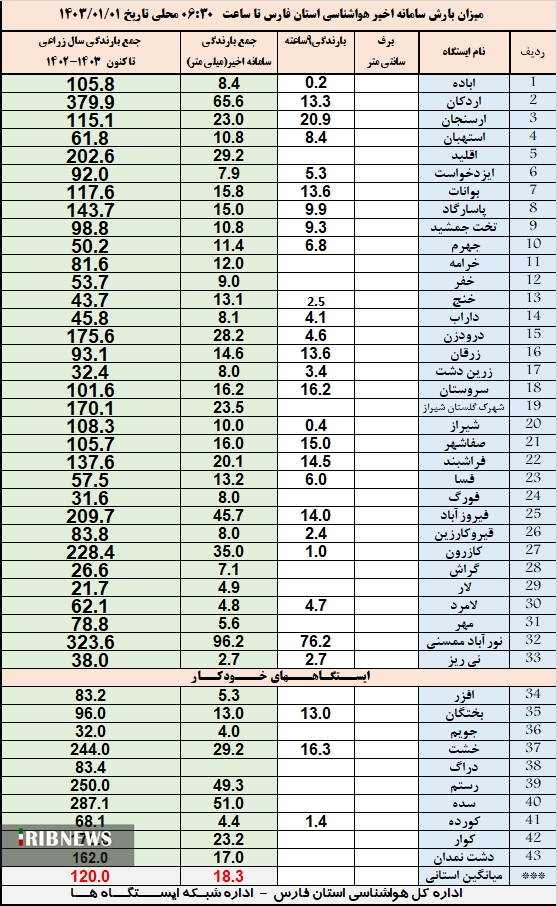 میزان بارش سامانه اخیر هواشناسی استان فارس تا ساعت ۰۶:۳۰ محلی تاریخ ۱۴۰۳/۰۱/۰۱
ردیف نام ایستگاه برف سانتی متر بارندگی۹ساعته جمع بارندگی سامانه اخیر(میلی متر) جمع بارندگی سال زراعی تا کنون ۱۴۰۳-۱۴۰۲
1 اباده 0.2 8.4 105.8
2 اردکان 13.3 65.6 379.9
3 ارسنجان 20.9 23.0 115.1
4 استهبان 8.4 10.8 61.8
5 اقلید 29.2 202.6
6 ایزدخواست 5.3 7.9 92.0
7 بوانات 13.6 15.8 117.6
8 پاسارگاد 9.9 15.0 143.7
9 تخت جمشید 9.3 10.8 98.8
10 جهرم 6.8 11.4 50.2
11 خرامه 12.0 81.6
12 خفر 9.0 53.7
13 خنج 2.5 13.1 43.7
14 داراب 4.1 8.1 45.8
15 درودزن 4.6 28.2 175.6
16 زرقان 13.6 14.6 93.1
17 زرین دشت 3.4 8.0 32.4
18 سروستان 16.2 16.2 101.6
19 شهرک گلستان شیراز 23.5 170.1
20 شیراز 0.4 10.0 108.3
21 صفاشهر 15.0 16.0 105.7
22 فراشبند 14.5 20.1 137.6
23 فسا 6.0 13.2 57.5
24 فورگ 8.0 31.6
25 فیروزآباد 14.0 45.7 209.7
26 قیروکارزین 2.4 8.0 83.8
27 کازرون 1.0 35.0 228.4
28 گراش 7.1 26.6
29 لار 4.9 21.7
30 لامرد 4.7 4.8 62.1
31 مهر 5.6 78.8
32 نورآباد ممسنی 76.2 96.2 323.6
33 نی ریز 2.7 2.7 38.0
ایستگاههای خودکار
34 افزر 5.3 83.2
35 بختگان 13.0 13.0 96.0
36 جویم 4.0 32.0
37 خشت 16.3 29.2 244.0
38 دراگ 83.4
39 رستم 49.3 250.0
40 سده 51.0 287.1
41 کورده 1.4 4.4 68.1
42 کوار 23.2
43 دشت نمدان 17.0 162.0
*** میانگین استانی 18.3 120.0
اداره کل هواشناسی استان فارس - اداره شبکه ایستگاه ها
IRIBNEWS